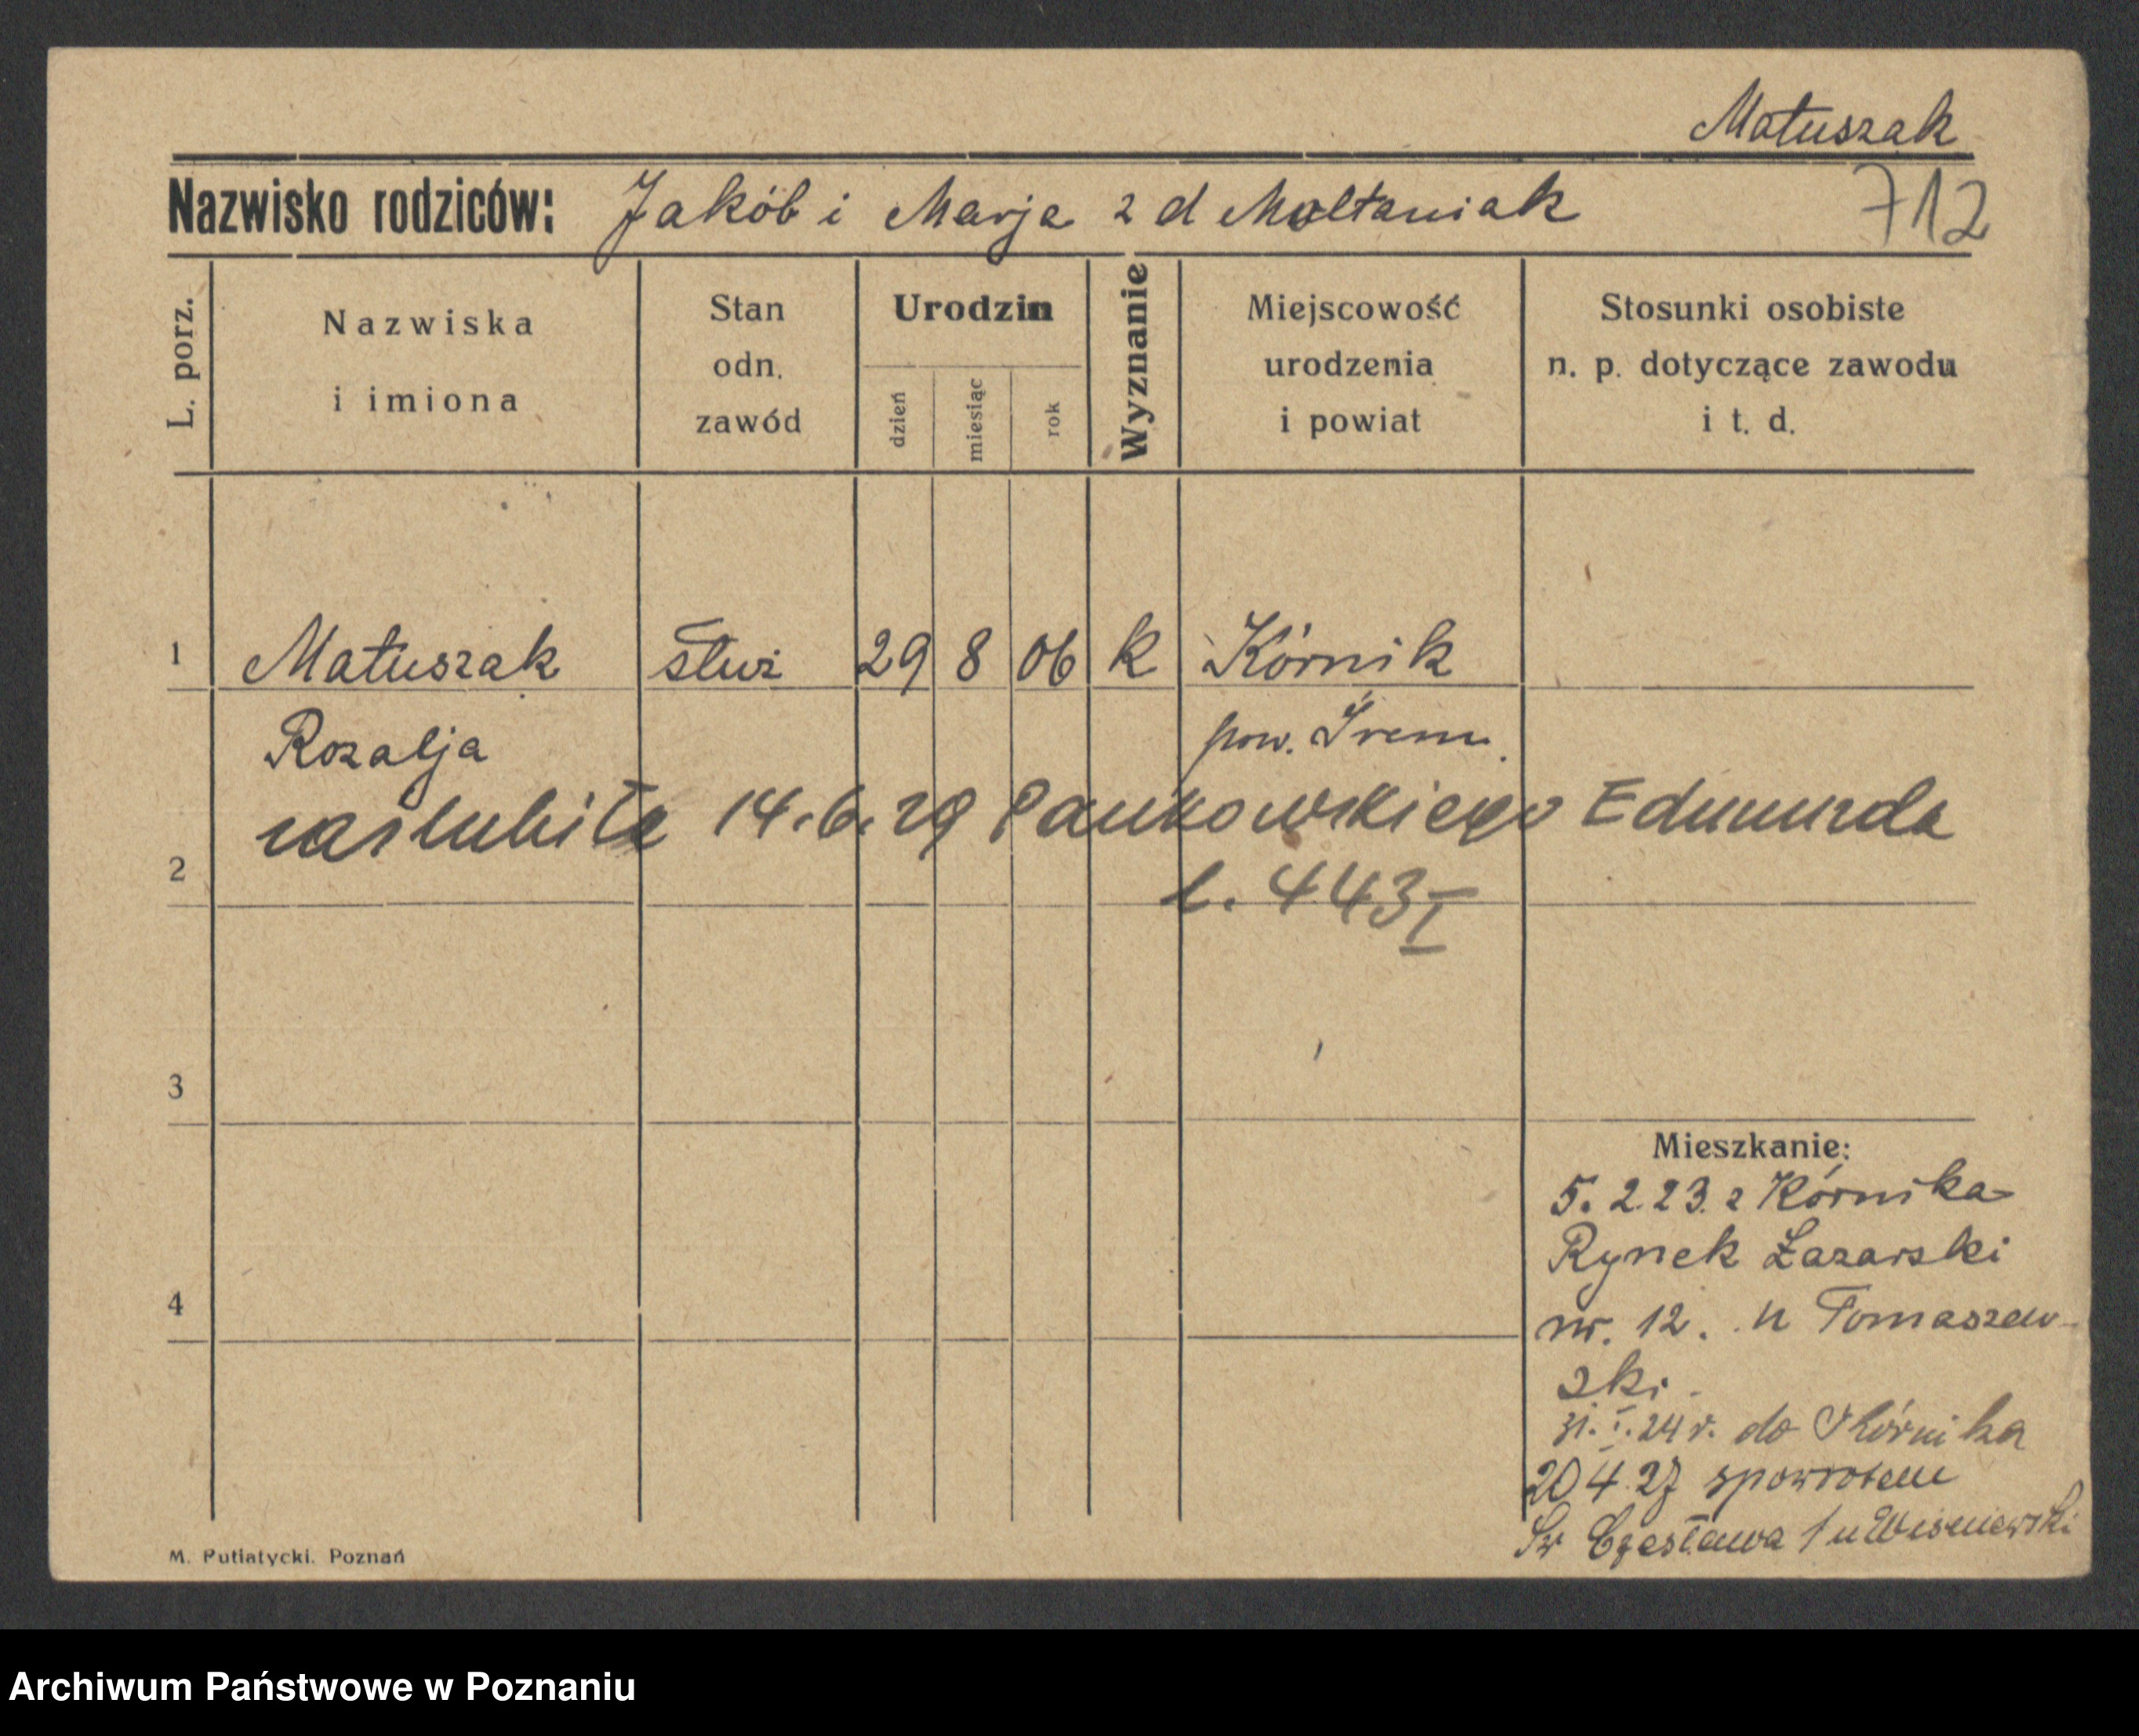 Matuszak
Nazwisko rodziców: Jakób i Marja z d Maltaniak
712
L. porz.
Nazwiska
i imiona
Stan
odn.
zawód
Urodzin
dzień
miesiąc
rok
Wyznanie
Miejscowość
urodzenia
i powiat
Stosunki osobiste
n. p. dotyczące zawodu
i t. d.
1 Matuszak służ 29 8 06 k Kórnik
Rozalja pow. Śrem.
zaślubiła 14.6.29 Pankowskiego Edmunda
2 l. 443 I
3
Mieszkanie:
5. 2.23. z Kórnika
Rynek Łazarski
4 nr. 12. u Tomaszew-
ski.
31. I. 24 r. do Kórnika
20 4 27 spowrotem
Św Czesława 1 u Wisniewski
M. Putiatycki. Poznań
Archiwum Państwowe w Poznaniu